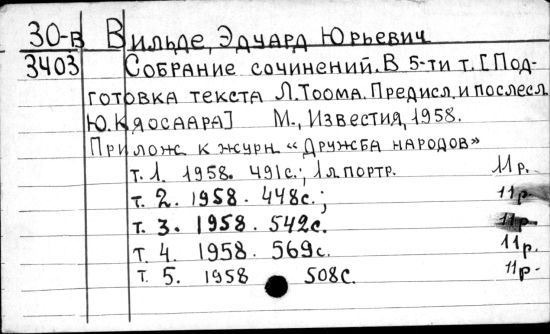 30-в Вильде, Эдуард Юрьевич
3403 Собрание сочинений. В 5-ти т. [Под-
готовка текста Л. Тоома. Предисл. и послесл.
Ю. Кяосаара] М., Известия, 1958.
Прилож. к журн. «Дружба народов»
т. 1. 1958. 491с.; 1л портр. 11р.
т. 2. 1958. 448с.; 11р.
т. 3. 1958. 542с. 11р.
т. 4. 1958. 569с. 11р.
т. 5. 1958 508с. 11р.